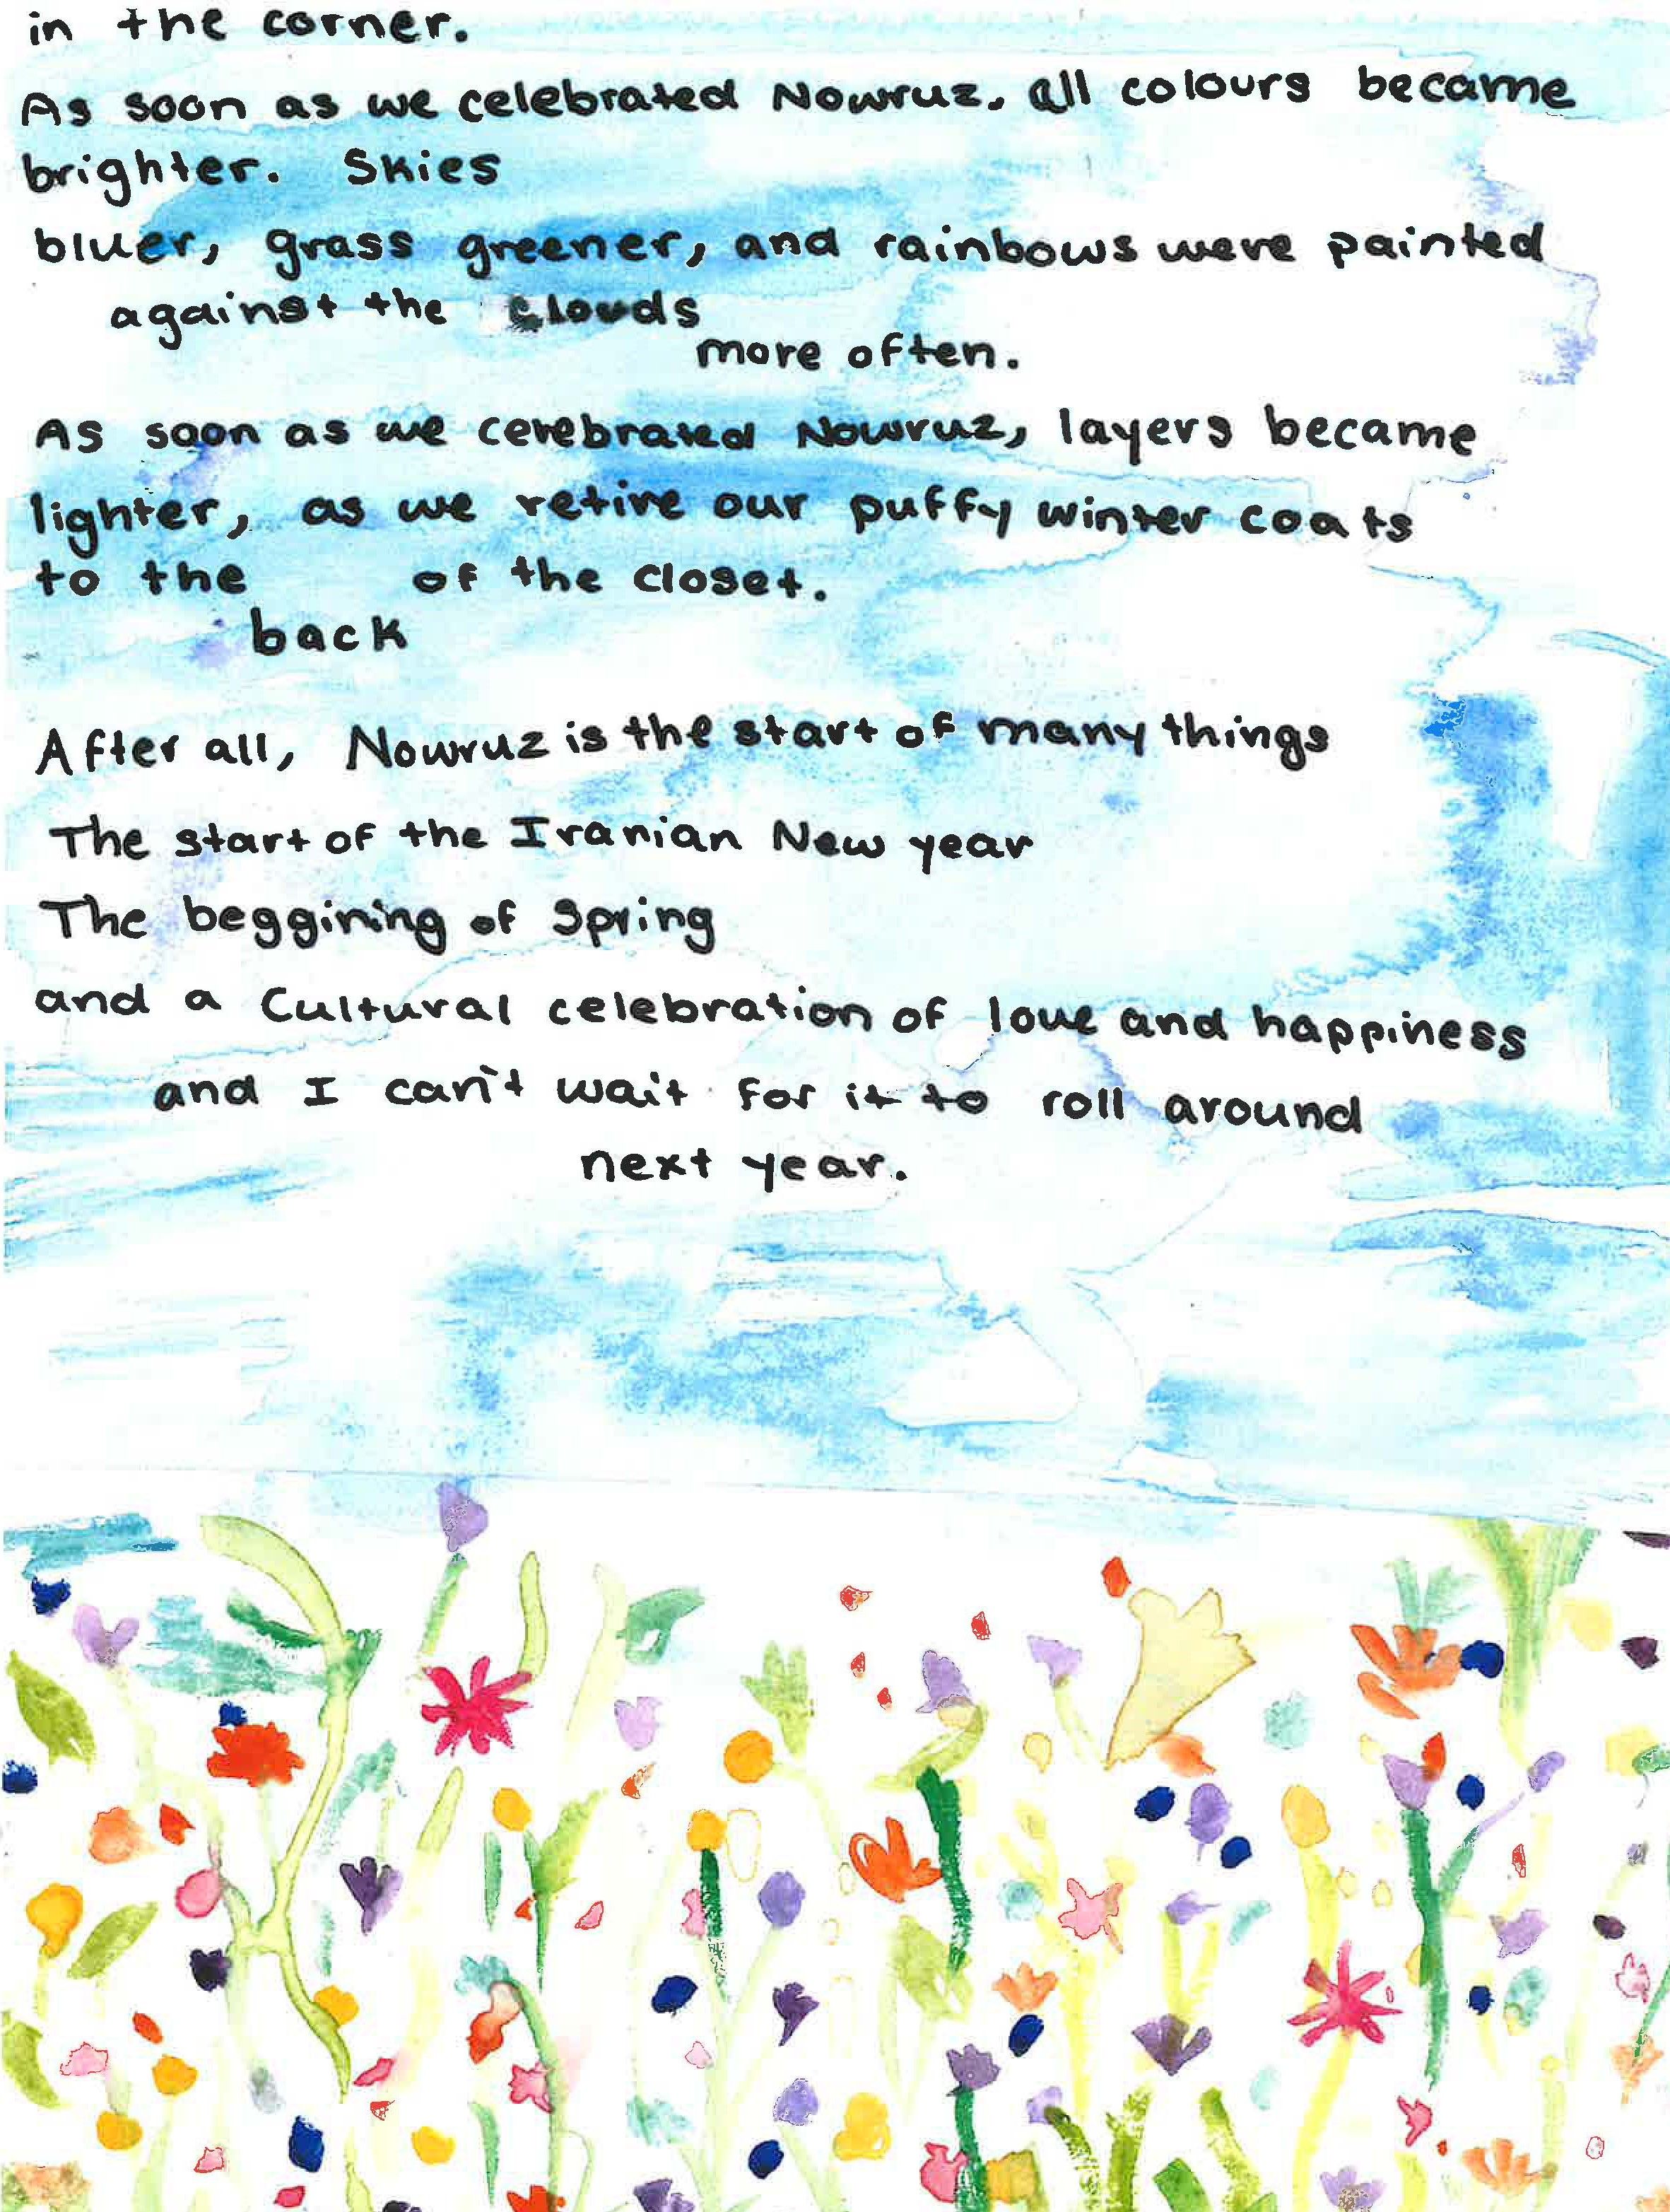 in the corner.
As soon as we celebrated Nowruz, all colours became
brighter. Skies
bluer, grass greener, and rainbows were painted
against the clouds
more often.
As soon as we celebrated Nowruz, layers became
lighter, as we retire our puffy winter coats
to the of the closet.
back
After all, Nowruz is the start of many things
The start of the Iranian New year
The beggining of Spring
and a Cultural celebration of love and happiness
and I can't wait for it to roll around
next year.